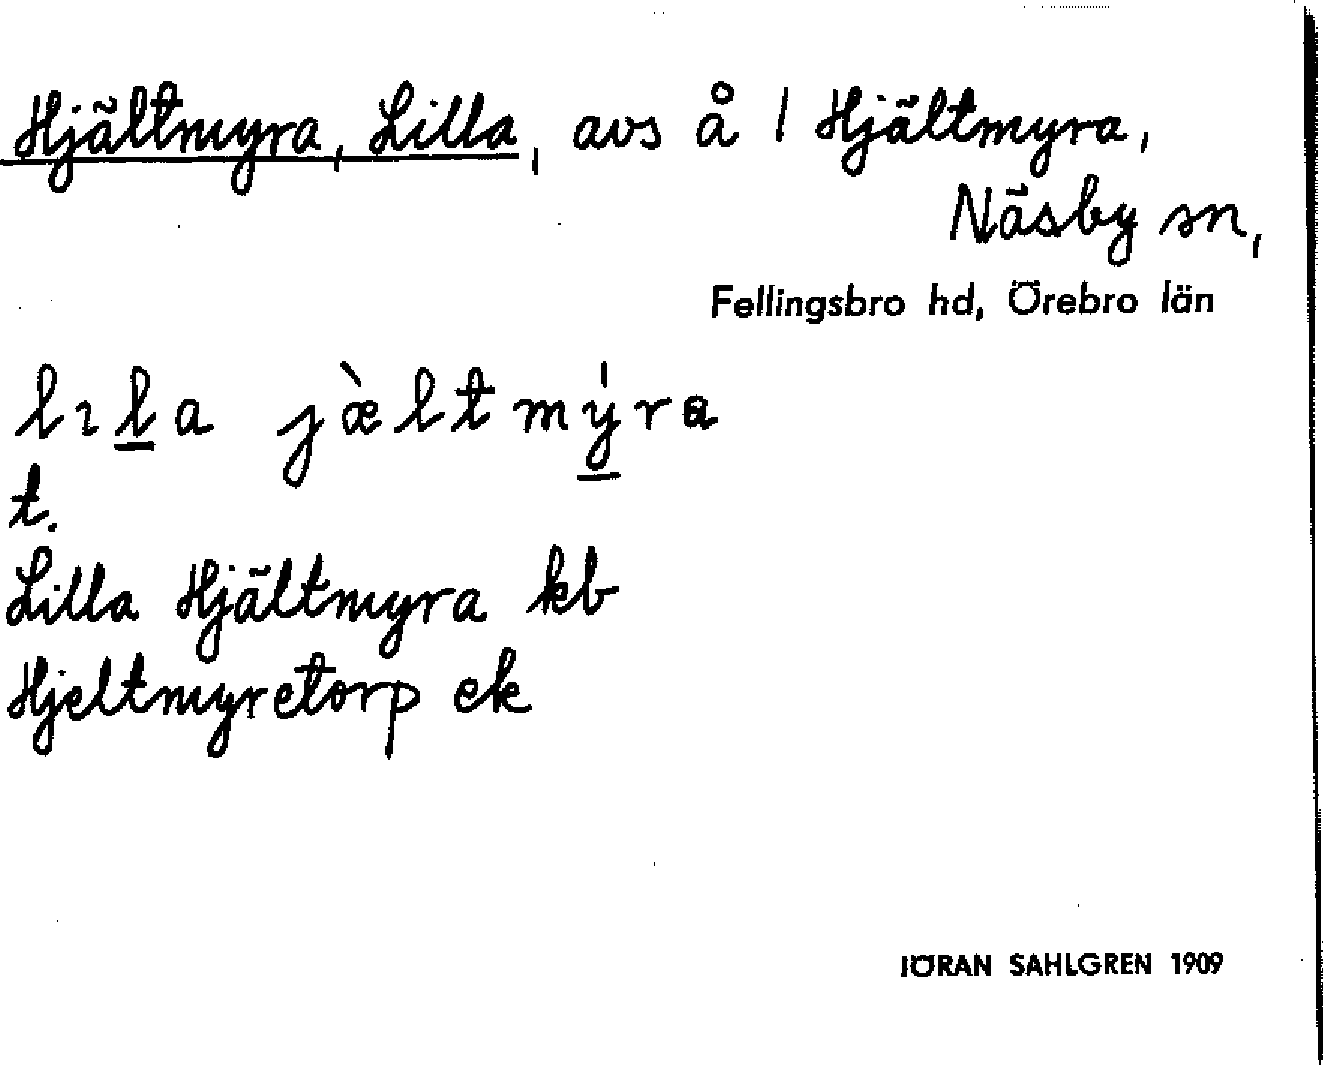 Hjältmyra, Lilla, avs å / Hjältmyra,
Näsby sn,
Fellingsbro hd, Örebro län
lıl̲a jæ̀ltmý̲ra
t.
Lilla Hjältmyra kb
Hjeltmyretorp ek
JÖRAN SAHLGREN 1909